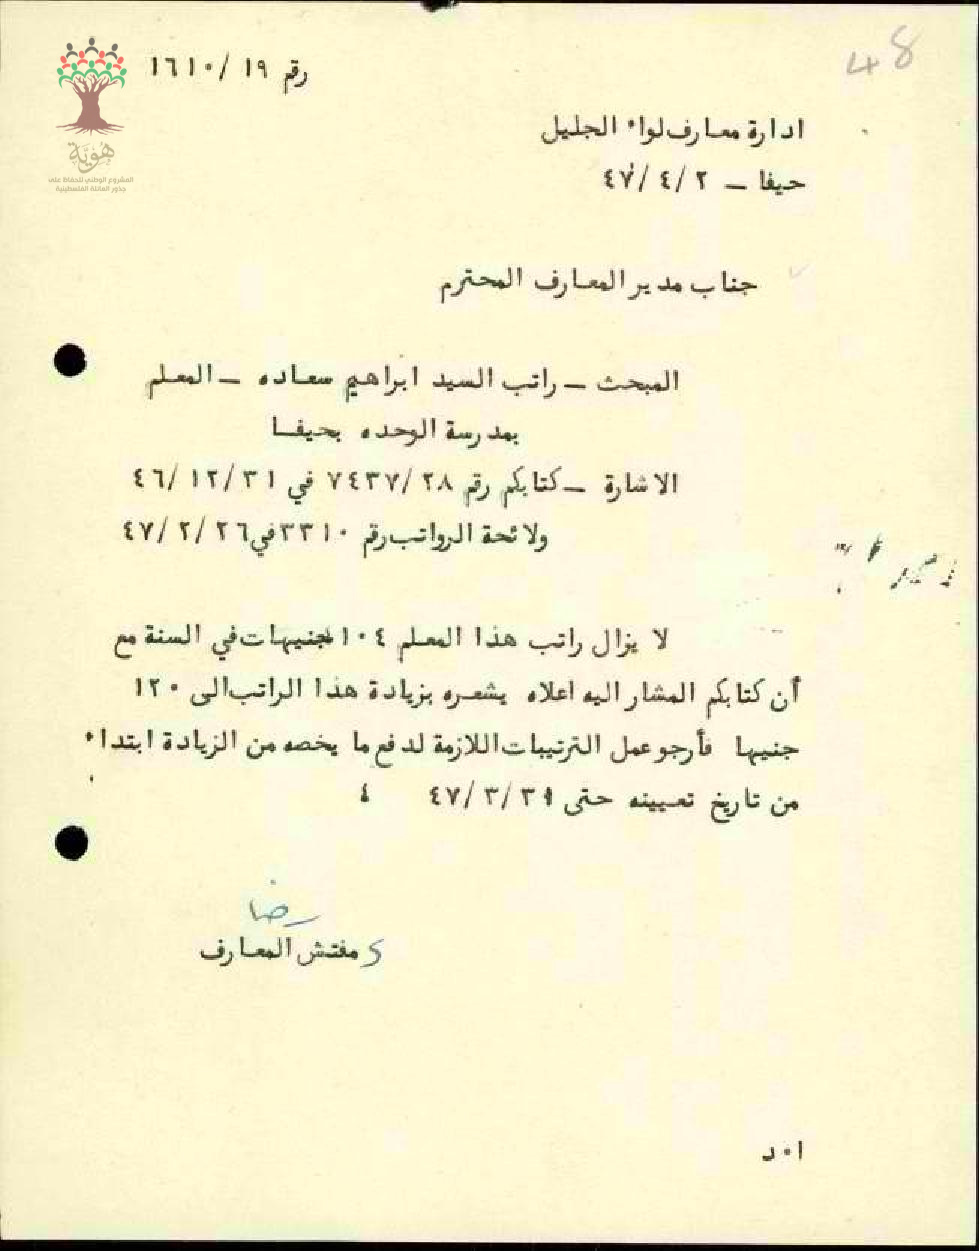 48
رقم ١٩/ ١٦١٠
هوية
المشروع الوطني للحفاظ على
جذور العائلة الفلسطينية
ادارة معارف لواء الجليل
حيفا – ٢/ ٤/ ٤٧
جناب مدير المعارف المحترم
المبحث – راتب السيد ابراهيم سعاده – المعلم
بمدرسة الوحده بحيفا
الاشارة – كتابكم رقم ٢٨/ ٧٤٣٧ في ٣١/ ١٢/ ٤٦
ولائحة الرواتب رقم ٣٣١٠ في ٢٦/ ٢/ ٤٧
لا يزال راتب هذا المعلم ١٠٤ جنيهات في السنة مع
أن كتابكم المشار اليه اعلاه يشعره بزيادة هذا الراتب الى ١٢٠
جنيها فأرجو عمل الترتيبات اللازمة لدفع ما يخصه من الزيادة ابتداء
من تاريخ تعيينه حتى ٣١/ ٣/ ٤٧
رضا
مفتش المعارف
ا٠د